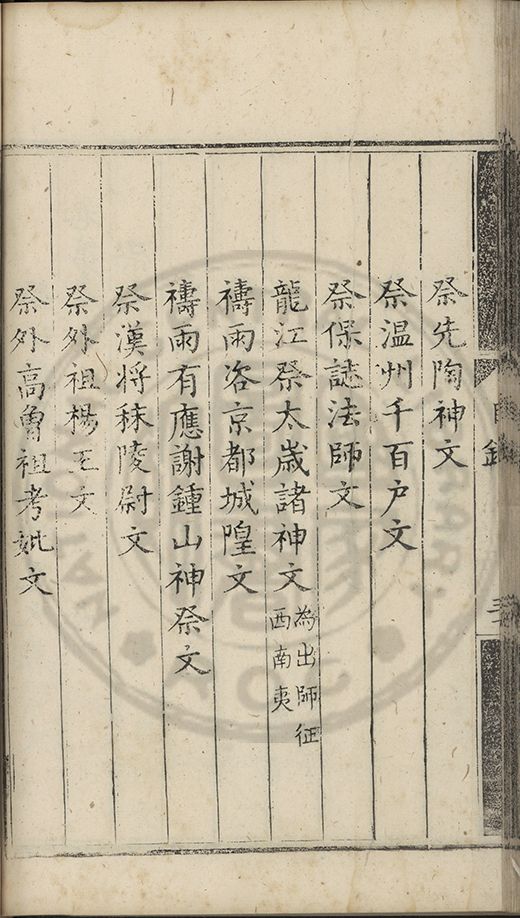 祭先陶神文
祭温州千百户文
祭保誌法師文
龍江祭太歲諸神文為出師征西南夷
禱雨咨京都城隍文
禱雨有應謝鍾山神祭文
祭漢將秣陵尉文
祭外祖楊王文
祭外高曾祖考妣文
目錄
三